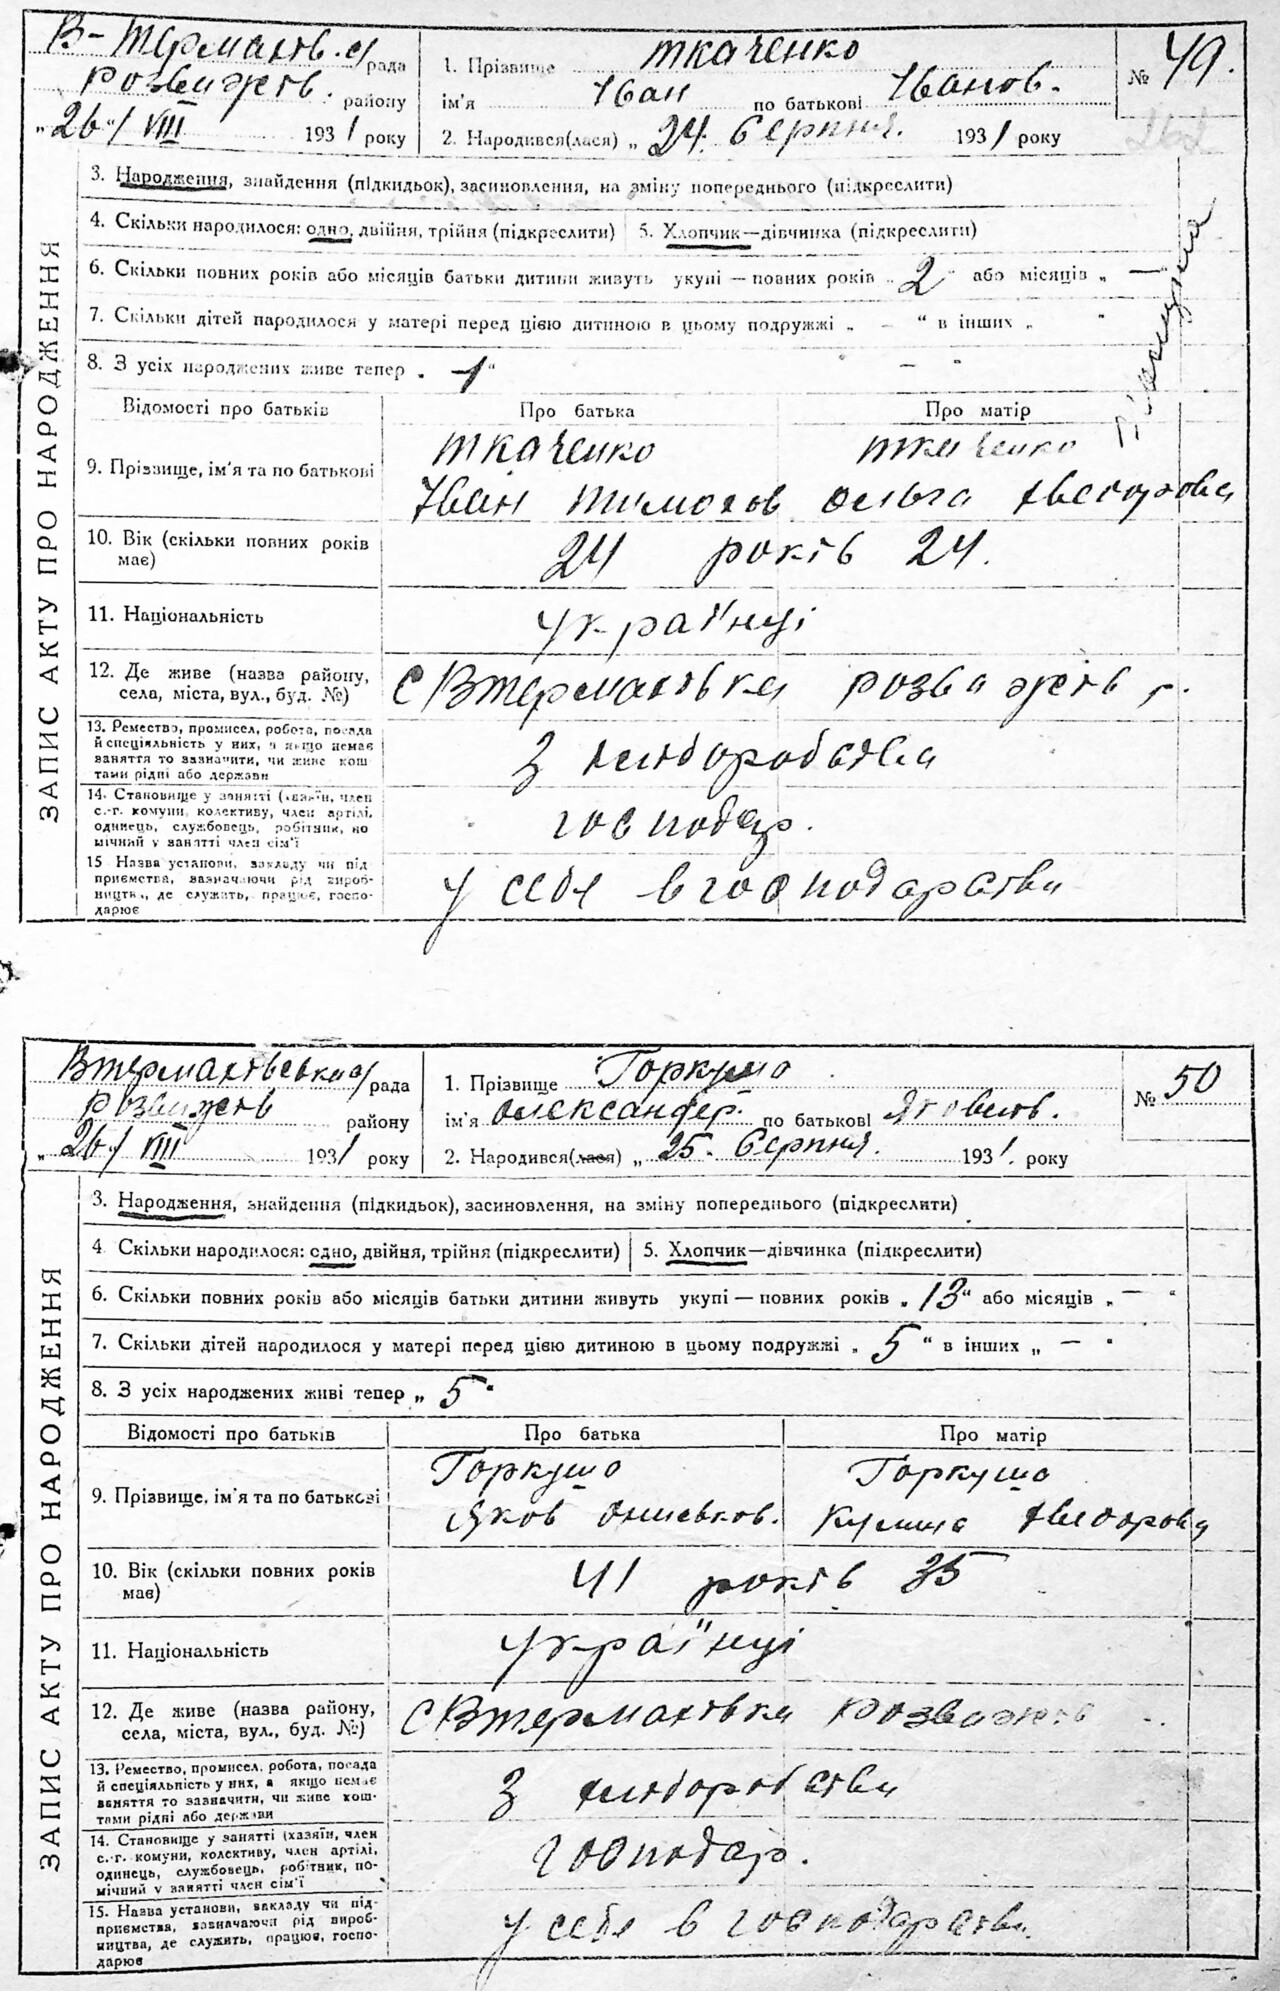 ЗАПИС АКТУ ПРО НАРОДЖЕННЯ
В-Термахів. с/рада
Розважів. району
„26“/VIII 1931 року
1. Прізвище Ткаченко
ім'я Іван по батькові Іванов.
2. Народився(лася) „24. Серпня. 1931 року
№ 49.
262
3. Народження, знайдення (підкидьок), засиновлення, на зміну попереднього (підкреслити)
4. Скільки народилося: одно, двійня, трійня (підкреслити) 5. Хлопчик—дівчинка (підкреслити)
6. Скільки повних років або місяців батьки дитини живуть укупі — повних років „2“ або місяців „ —
7. Скільки дітей народилося у матері перед цією дитиною в цьому подружжі „ – “ в інших „ "
8. З усіх народжених живе тепер „ 1 “ — "
Відомості про батьків Про батька Про матір
9. Прізвище, ім'я та по батькові
Ткаченко Ткаченко
Іван Тимохов. Ольга Хведорова
10. Вік (скільки повних років має)
24 років 24.
11. Національність українці
12. Де живе (назва району, села, міста, вул., буд. №)
с Втермахівка Розважів р.
13. Ремество, промисел, робота, посада
й спеціяльність у них, а якщо немає
заняття то зазначити, чи живе кош
тами рідні або держави
З хліборобства
14. Становище у занятті (хазяїн, член
с.-г. комуни, колективу, член артілі,
одинець, службовець, робітник, по
мічний у занятті член сім'ї
господар.
15 Назва установи, закладу чи під
приємства, зазначаючи рід вироб-
ництва, де служить, працює, госпо-
дарює
у себе в господарстві
ЗАПИС АКТУ ПРО НАРОДЖЕННЯ
Втермахівська с/рада
Розважів району
„26“/VIII 1931 року
1. Прізвище Горкуша
ім'я Олександер. по батькові Яковлів.
2. Народився(лася) „ 25. Серпня. 1931. року
№ 50
3. Народження, знайдення (підкидьок), засиновлення, на зміну попереднього (підкреслити)
4 Скільки народилося: одно, двійня, трійня (підкреслити) 5. Хлопчик—дівчинка (підкреслити)
6. Скільки повних років або місяців батьки дитини живуть укупі — повних років „ 13“ або місяців „ — “
7. Скільки дітей народилося у матері перед цією дитиною в цьому подружжі „ 5 “ в інших „ — "
8. З усіх народжених живі тепер „ 5 "
Відомості про батьків Про батька Про матір
9. Прізвище, ім'я та по батькові
Горкуша Горкуша
Яков Хведорова
10. Вік (скільки повних років має)
41 років 35
11. Національність українці
12. Де живе (назва району, села, міста, вул., буд. №)
с Втермахівка Розважів
13. Ремество, промисел, робота, посада
й спеціяльність у них, а якщо немає
заняття то зазначити, чи живе кош-
тами рідні або держави
З хліборобства
14. Становище у занятті (хазяїн, член
с.-г. комуни, колективу, член артілі,
одинець, службовець, робітник, по-
мічний у занятті член сім'ї
господар.
15. Назва установи, закладу чи під-
приємства, зазначаючи рід вироб-
ництва, де служить, працює, госпо-
дарює
у себе в господарстві.